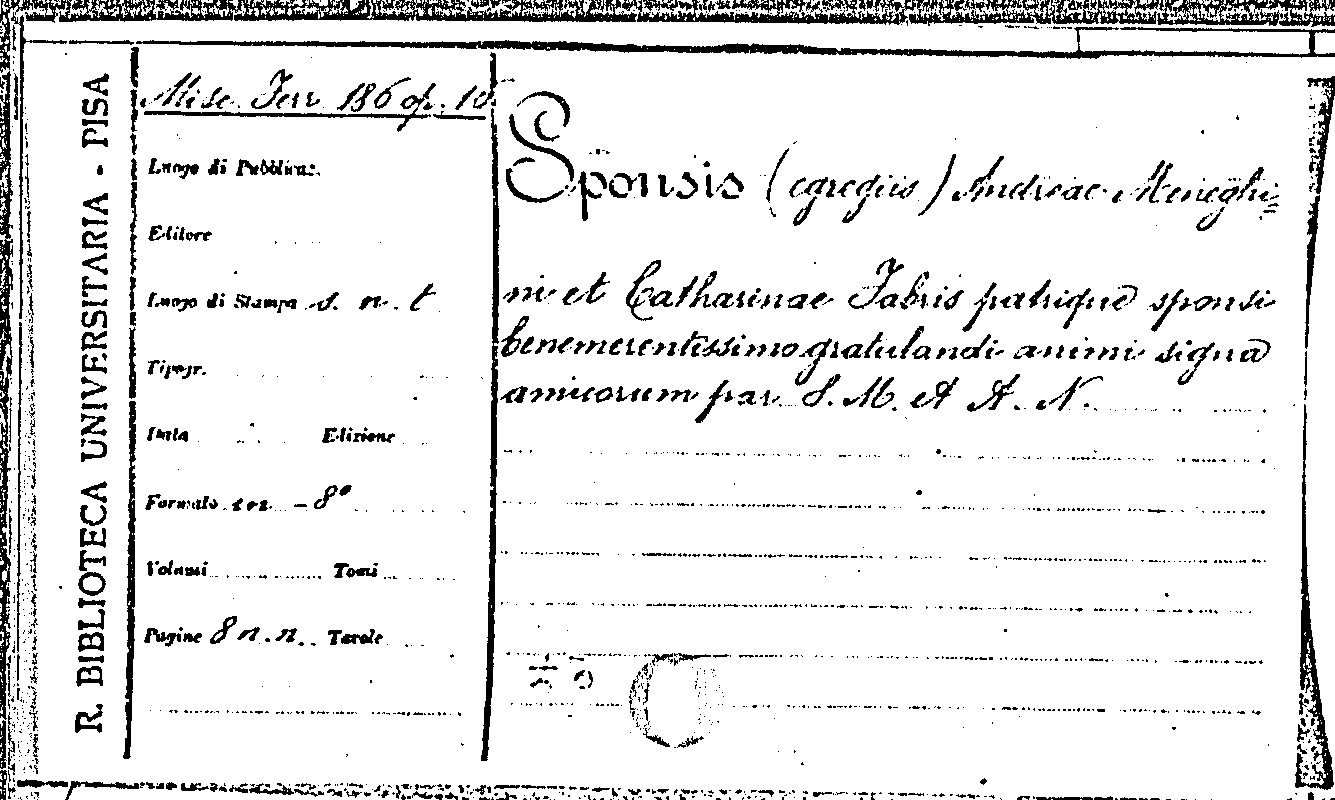 R. BIBLIOTECA UNIVERSITARIA - PISA
Misc. Ferr. 186 op. 10
Luogo di Pubblicaz.
Editore
Luogo di Stampa s. n. t
Tipogr.
Data Edizione
Formato in - 8°
Volumi Tomi
Pagine 8 n.n. Tavole
Sponsis (egregiis) Andreae Meneghi=
ni et Catharinae Fabris patrique sponsi
benemerentissimo gratulandi animi signa
amicorum par S. M. et A. N.